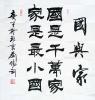 國與家
國是千萬家
家是最小國